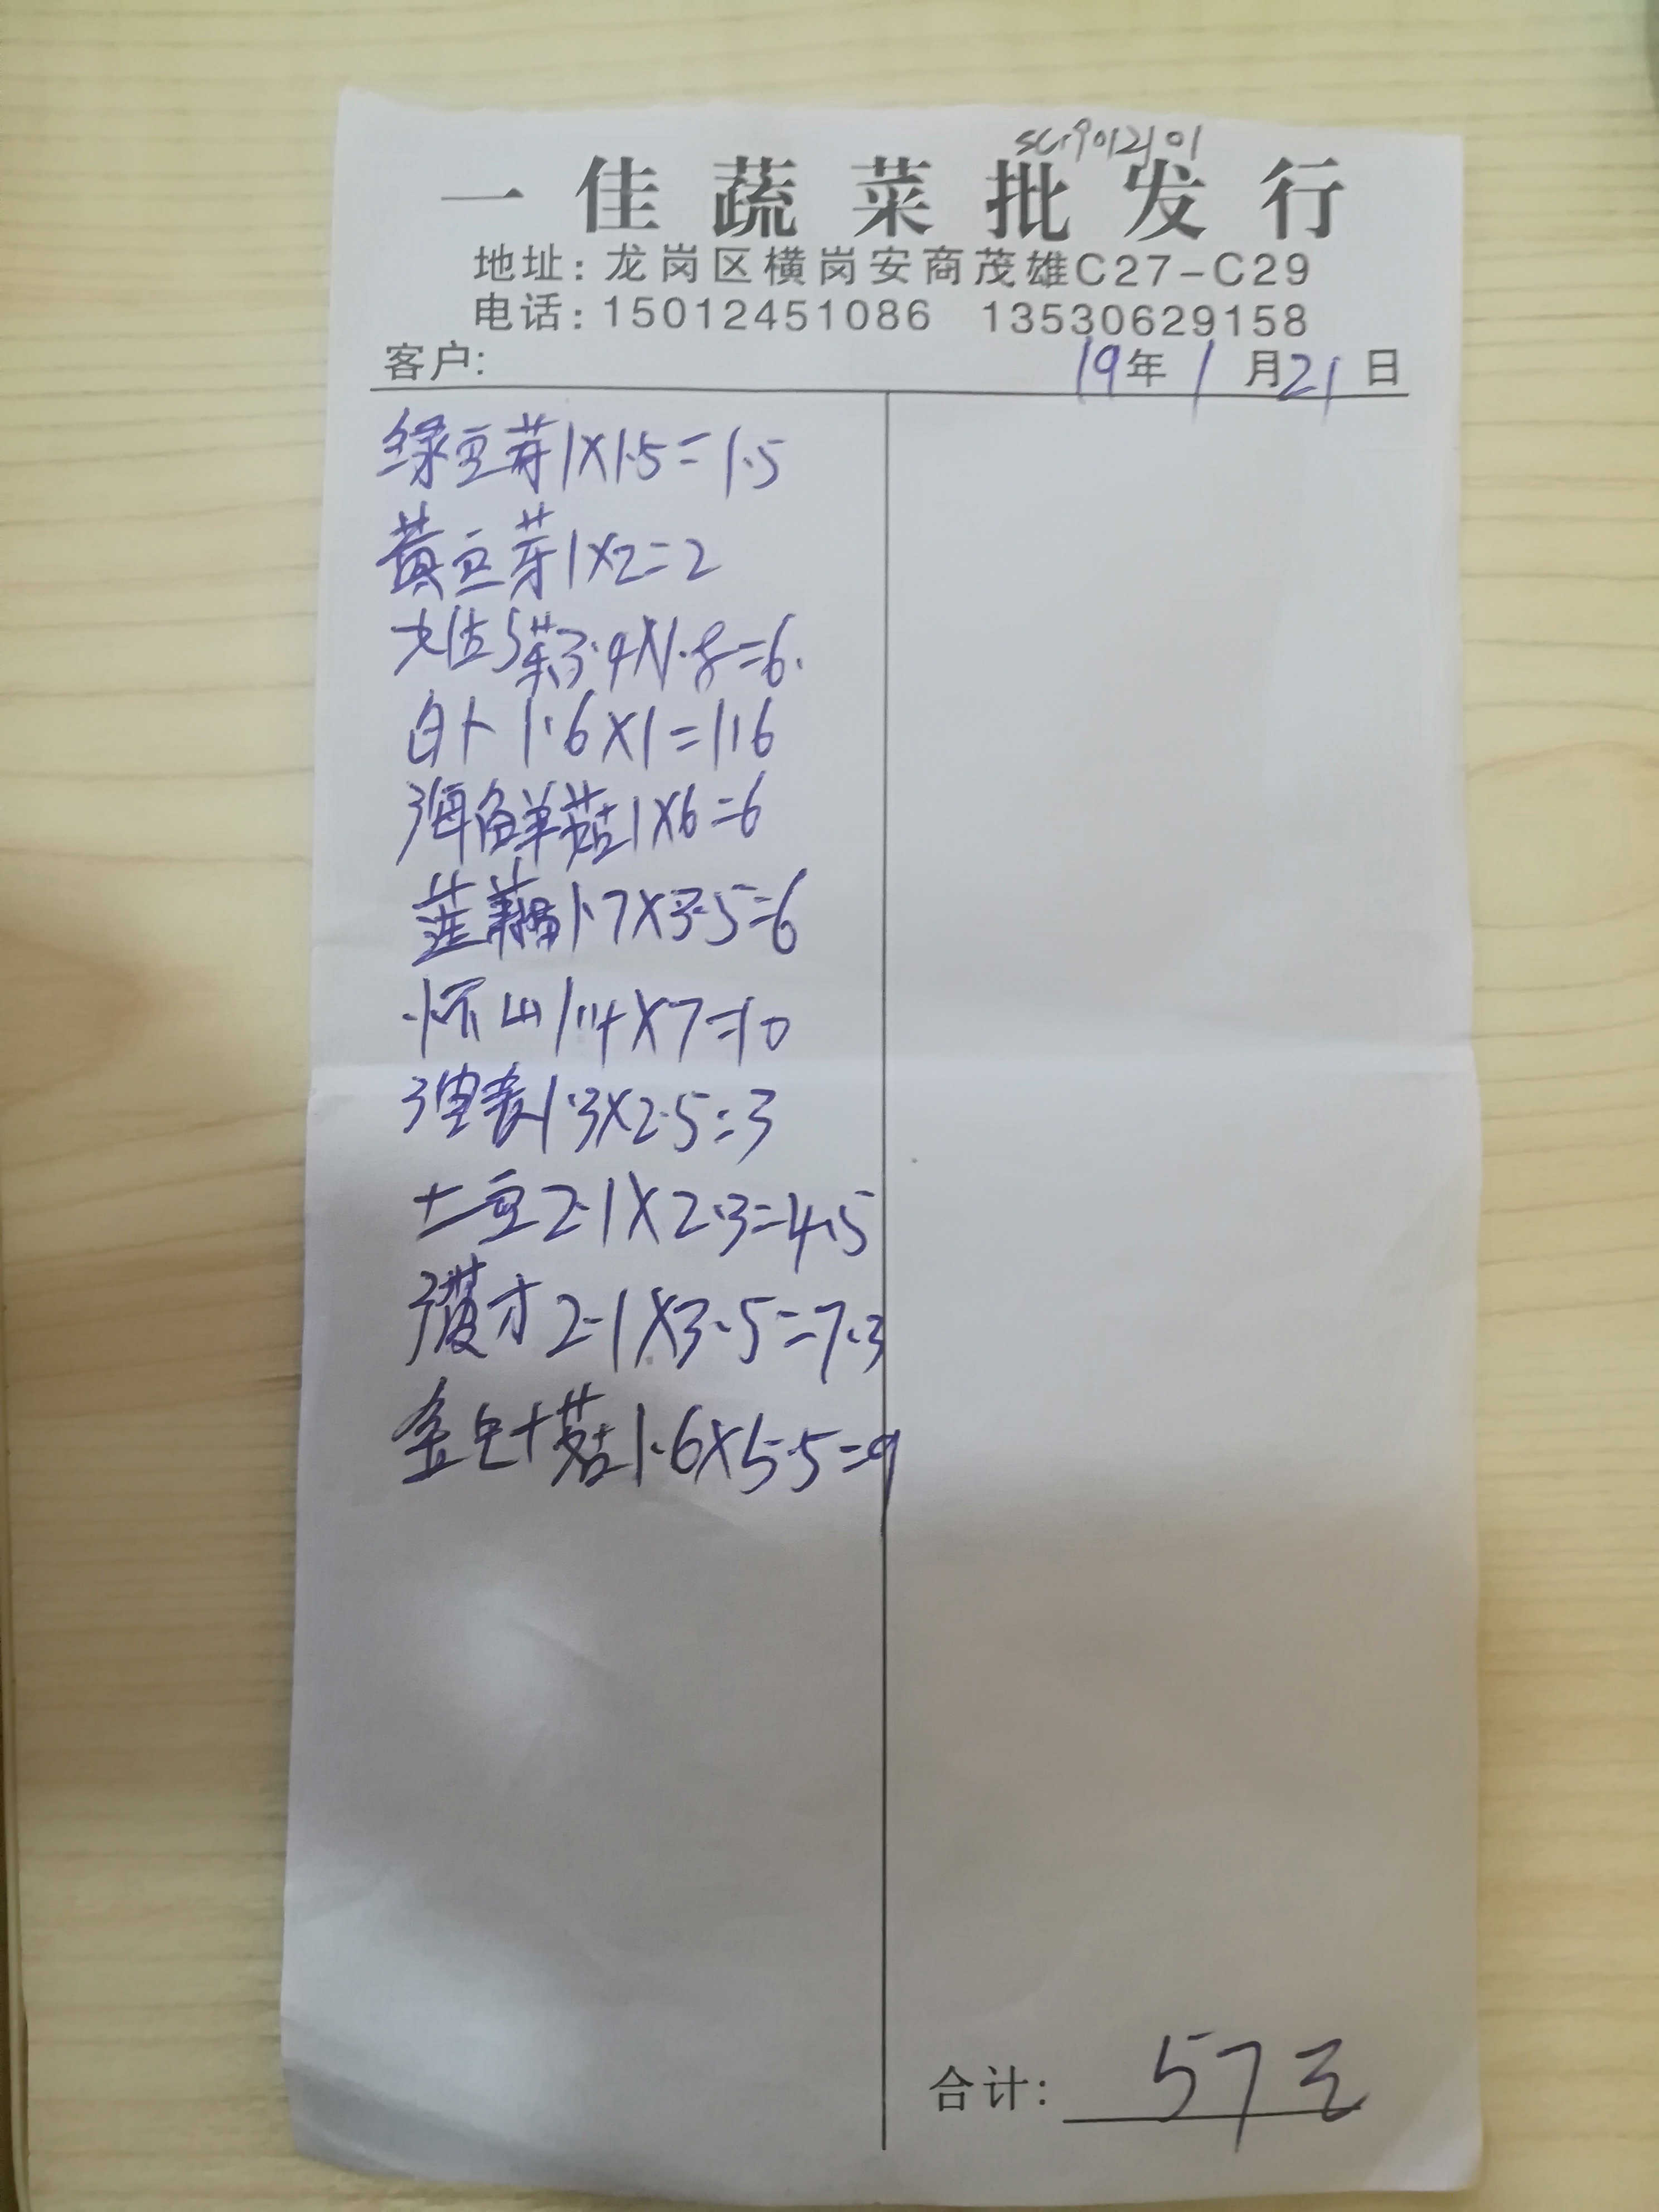 sc19012101
一佳蔬菜批发行
地址：龙岗区横岗安商茂雄C27-C29
电话：15012451086 13530629158
客户： 19年1月21日
绿豆芽1×1.5=1.5
黄豆芽1×2=2
3.4×1.8=6.
白卜1.6×1=1.6
海鲜菇1×6=6
莲藕1.7×3.5=6
怀山1.4×7=10
1.3×2.5=3
土豆2.1×2.3=4.5
2.1×3.5=7.3
金针菇1.6×5.5=9
合计： 57元